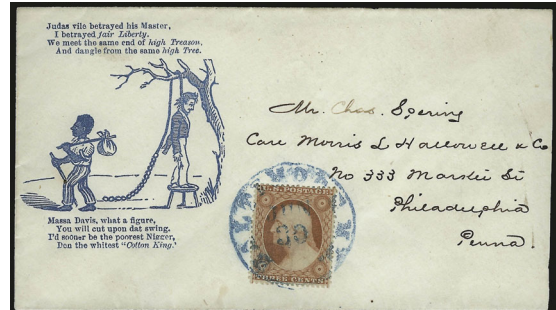 Judas vile betrayed his Master,
I betrayed fair Liberty.
We meet the same end of high Treason,
And dangle from the same high Tree.
Massa Davis, what a figure,
You will cut upon dat swing.
I'd sooner be the poorest Nigger,
Dan the whitest "Cotton King."
Mr. Chas. Spering
Care Morris L Hallowell & Co
No 333 Market St
Philadelphia
Penna
THREE CENTS